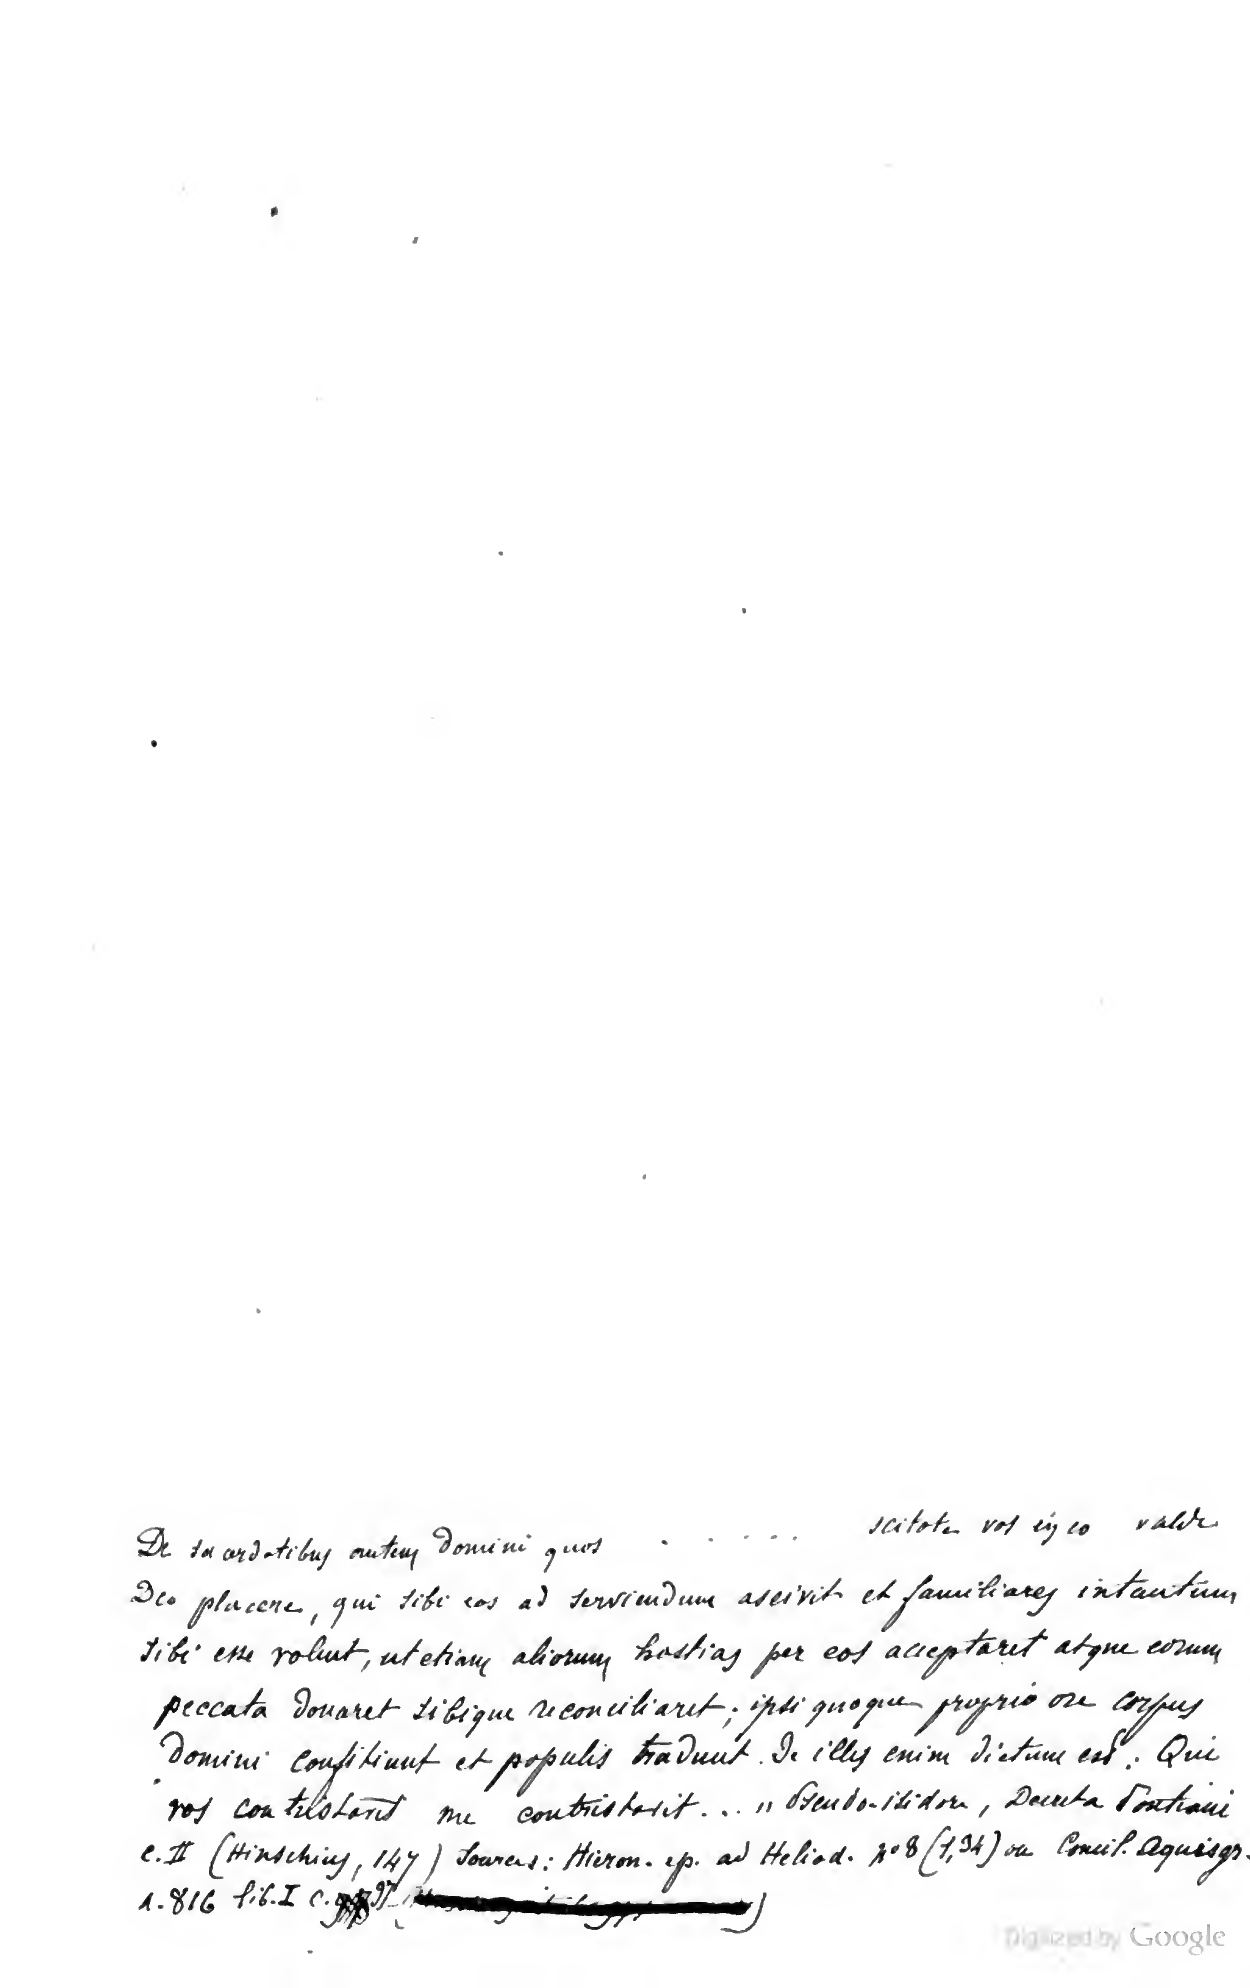 De sacerdotibus autem domini quos . . . . . scitote vos in eo valde
Deo placere, qui sibi eos ad serviendum ascivit et familiares intantum
sibi esse voluit, ut etiam aliorum hostias per eos acceptaret atque eorum
peccata donaret sibique reconciliaret; ipsi quoque proprio ore corpus
domini conficiunt et populis tradunt. De illis enim dictum est: Qui
vos contristaverit me contristavit... " Pseudo-isidore, Decreta Pontiani
c. II (Hinschius, 147) Sources: Hieron. ep. ad Heliod. no 8 (1,34) ou Concil. Aquisgr.
a. 816 lib. I c. 97
Digitized by Google